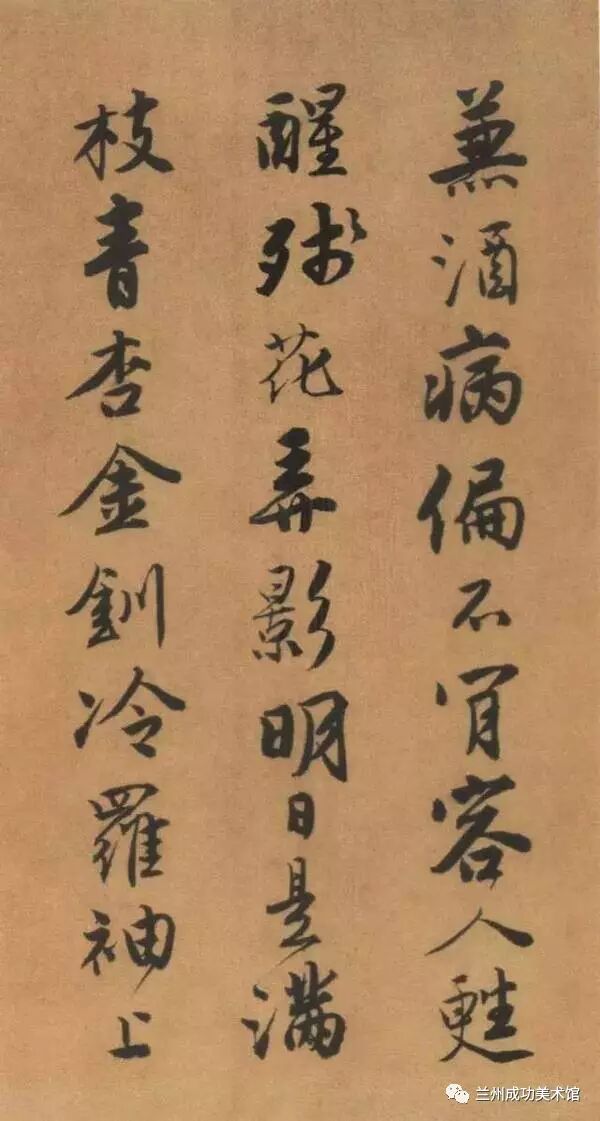 兼酒病偏不肯容人甦
醒残花弄影明日是满
枝青杏金釧冷羅袖上
兰州成功美术馆